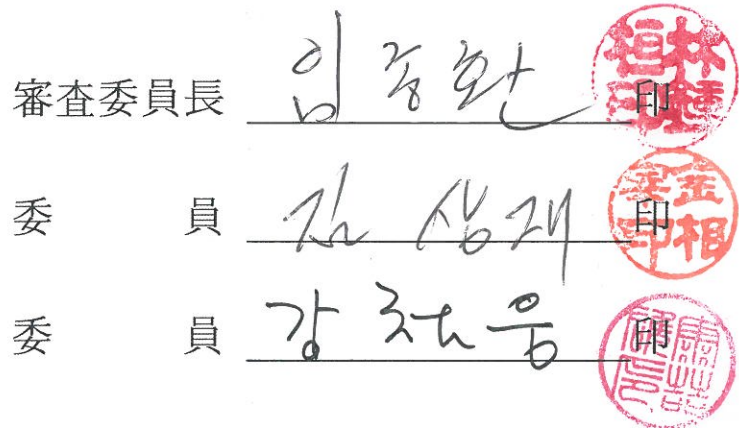 審査委員長 임종환 印
委員 김상재 印
委員 강철웅 印